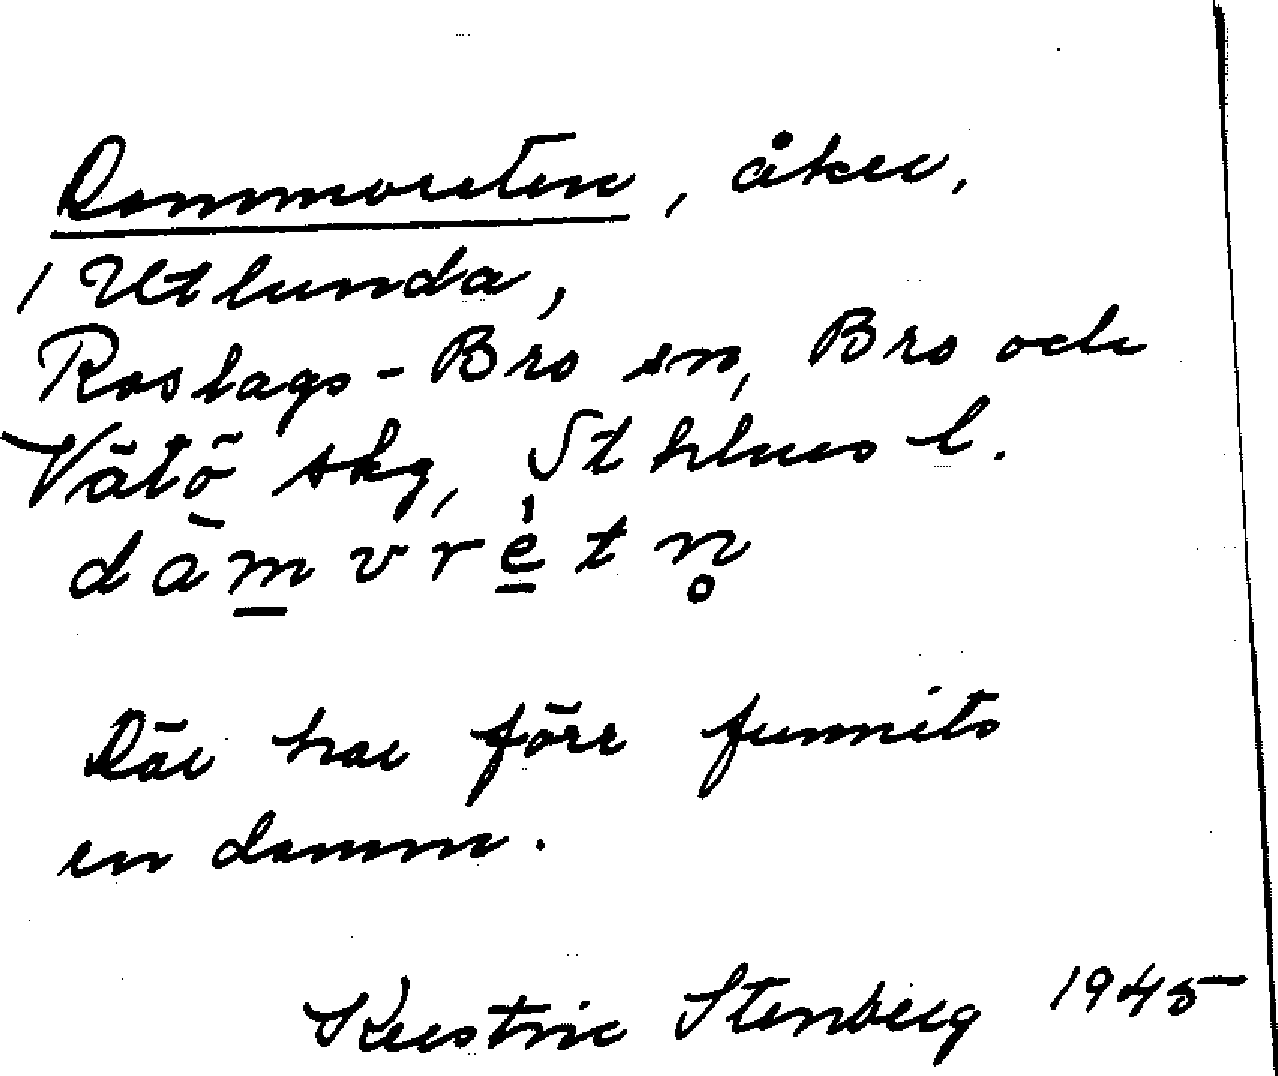 Dammvreten, åker,
/ Utlunda,
Roslags-Bro sn, Bro och
Vätö skg, Sthlms l.
dàm̲vrè̲tn̥
Där har förr funnits
en damm.
Kerstin Stenberg 1945